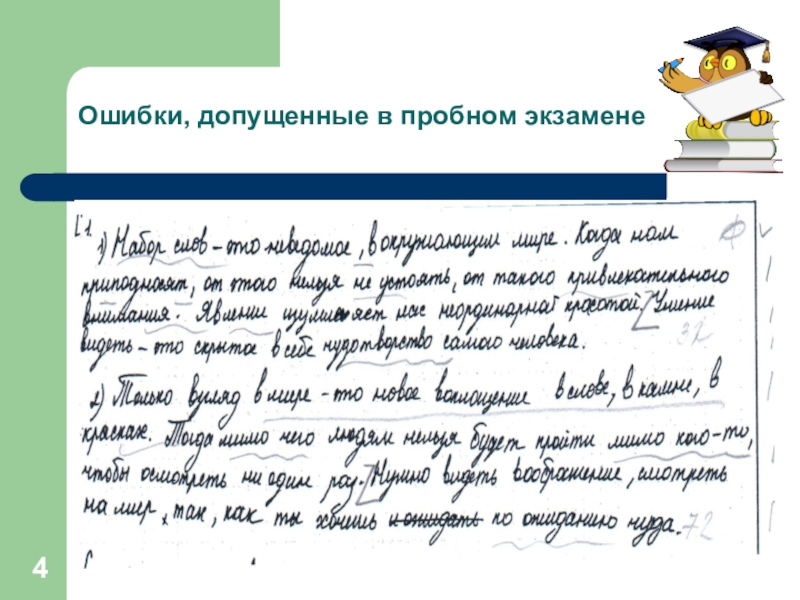 Ошибки, допущенные в пробном экзамене
С1.
1) Набор слов – это неведомое, в окружающем мире. Когда нам
приподносят, от этого нельзя не устоять, от такого привлекательного
внимания. Явление изумляет нас неординарной красотой. Умение
видеть – это скрытое в себе чудотворство самого человека. 32
2) Только взгляд в мире – это новое воплощение в слове, в камне, в
красках. Тогда мимо него людям нельзя будет пройти мимо кого-то,
чтобы осмотреть ни один раз. Нужно видеть воображение, смотреть
на мир, так, как ты хочешь и ожидать по ожиданию чуда. 72
4